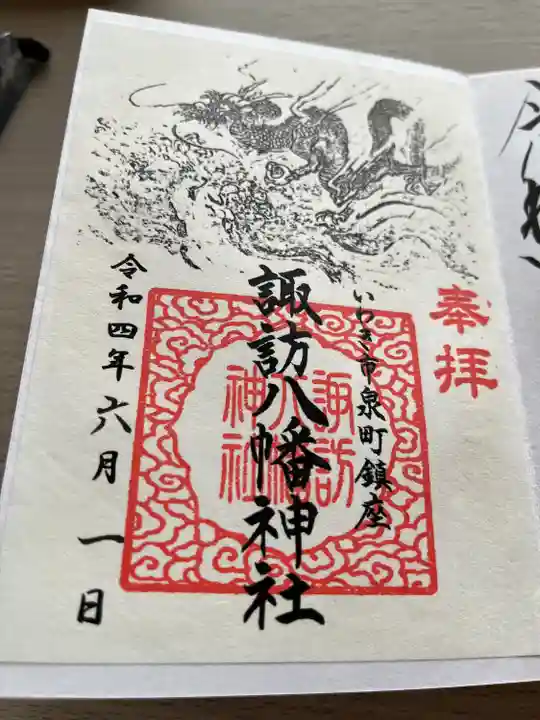 奉拝
いわき市泉町鎮座
諏訪八幡神社
諏訪
八幡
神社
令和四年六月一日